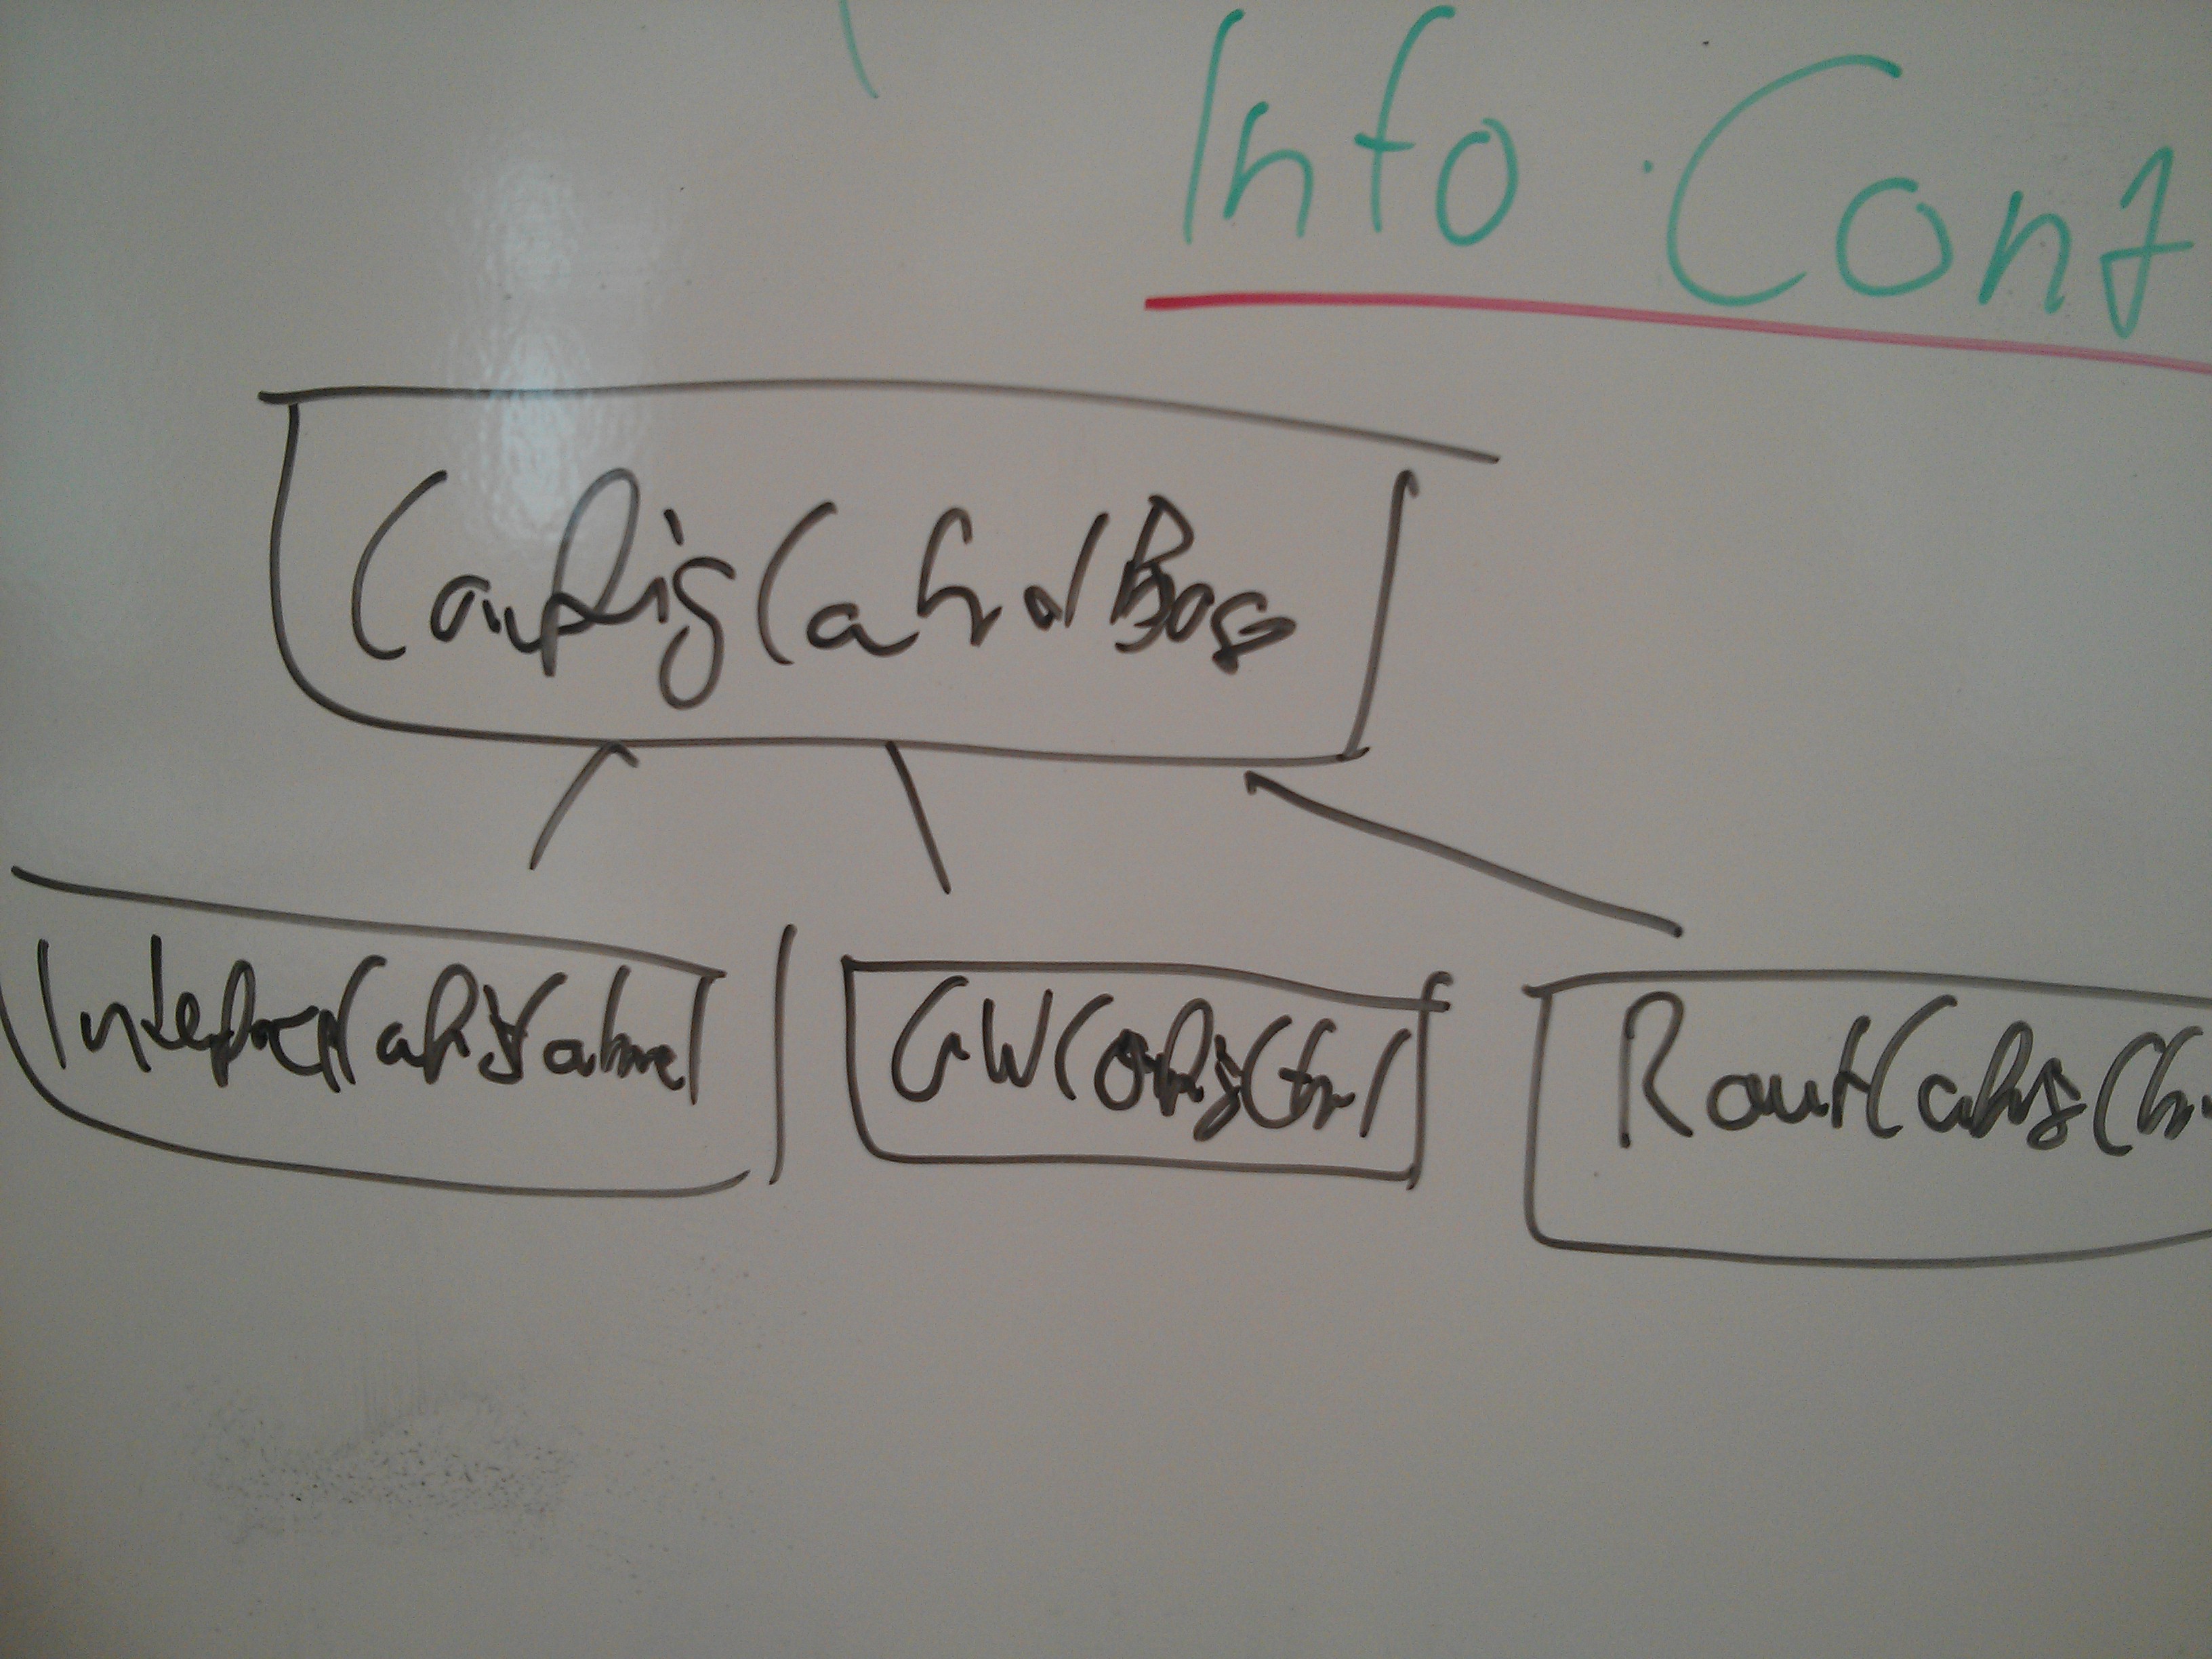 Info Conf
ConfigControlBase
InterfaceConfigControl
GWConfigCtrl
RoutConfigCtr